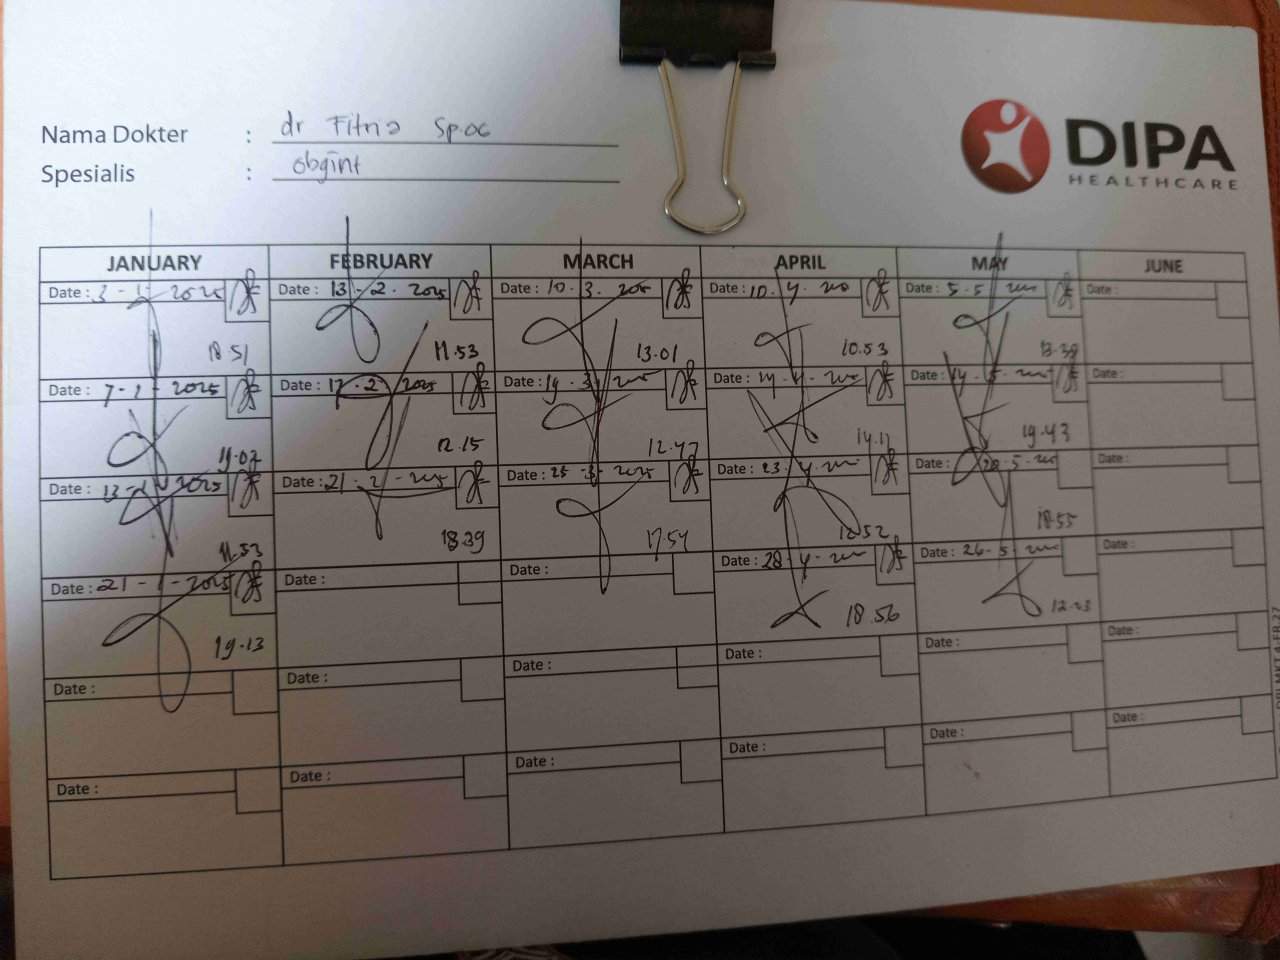 Nama Dokter : dr Fitria Sp.OG
Spesialis : obgint
DIPA
HEALTHCARE
JANUARY FEBRUARY MARCH APRIL MAY JUNE
Date : 3 - 1 - 2025 Date : 13 - 2 - 2025 Date : 10 . 3 . 2025 Date : 10 . 4 . Date : 5 . 5 Date :
18.51 11.53 13.01 10.53 13.39
Date : 7 - 1 - 2025 Date : 17 - 2 - 2025 Date : 19 . 3 . Date : 14 . 4 - Date : 14 . 5 . Date :
19.07 12.15 12.47 14.17 19.43
Date : 13 - 1 - 2025 Date : 21 - 2 - 2025 Date : 25 - 3 - 2025 Date : 23 . 4 . Date : 20 . 5 - Date :
11.53 18.39 17.54 12.52 18.55
Date : 21 - 1 - 2025 Date : Date : Date : 28 - 4 - Date : 26 - 5 - Date :
19.13 18.56 12.23
Date : Date : Date : Date : Date : Date :
Date : Date : Date : Date : Date : Date :